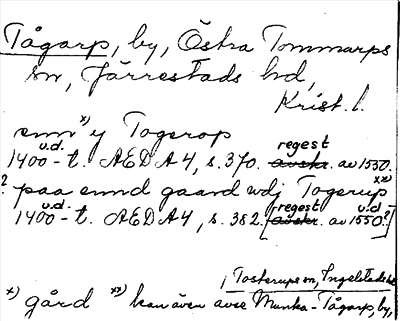 Tågarp, by, Östra Tommarps
sn, Järrestads hd,
Krist. l.
enn x) y Togerop
u.d. regest
1400-t. AEDA4, s. 370. avskr. av 1550.
? paa ennd gaard wdj Togerup xx)
u.d. regest u.d.
1400-t. AEDA4, s. 382. [avskr. av 1550?]
/ Tosterups sn, Ingelstads hd
x) gård xx) kan även avse Munka-Tågarp, by,